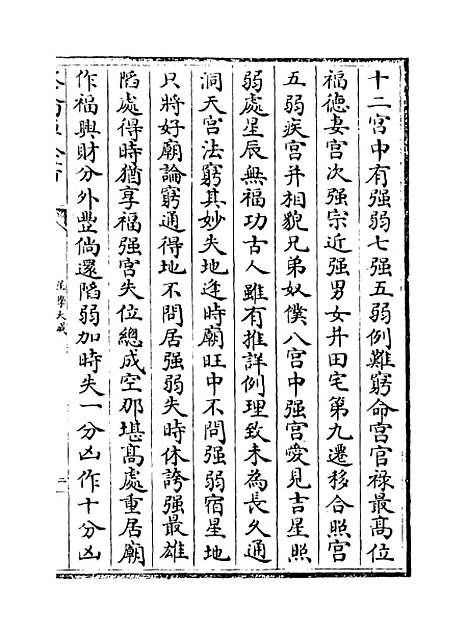 十二宫中有强弱七强五弱例難窮命宫官禄最髙位
福德妻宫次强宗近强男女并田宅第九遷移合照宫
五弱疾宫并相貌兄弟奴僕八宫中强宫愛見吉星照
弱處星辰無福功古人雖有推詳例理致未為長久通
洞天宫法窮其妙失地逢時廟旺中不問强弱宿星地
只將好廟論窮通得地不問居强弱失時休誇强最雄
陷處得時猶享福强宫失位總成空那堪髙處重居廟
作福興財分外豐倘還陷弱加時失一分凶作十分凶
星學大成
二